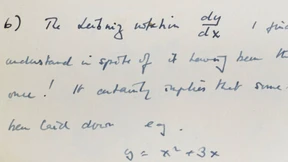 6) The Leibniz notation dy/dx I find
understand in spite of it having been th
once! It certainly implies that some
been laid down eg.
y = x² + 3x